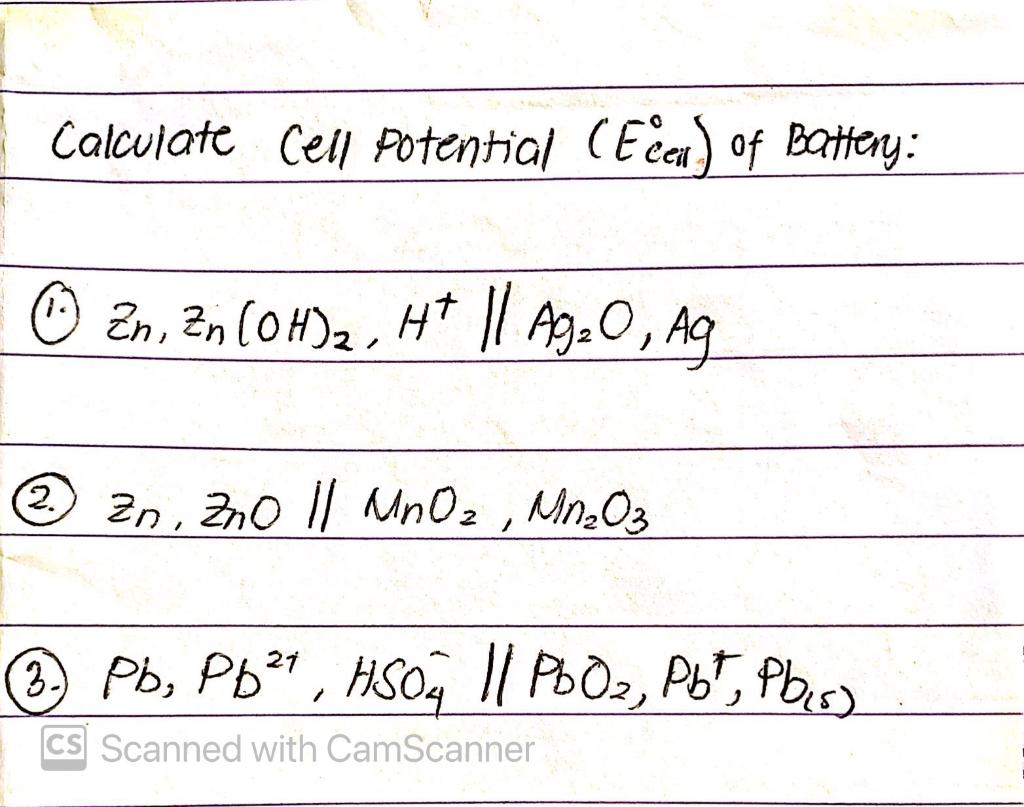 Calculate Cell Potential (E°cell) of Battery:
1. Zn, Zn(OH)₂, H⁺ || Ag₂O, Ag
2. Zn, ZnO || MnO₂, Mn₂O₃
3. Pb, Pb²⁺, HSO₄⁻ || PbO₂, Pb⁺, Pb(s)
CS Scanned with CamScanner